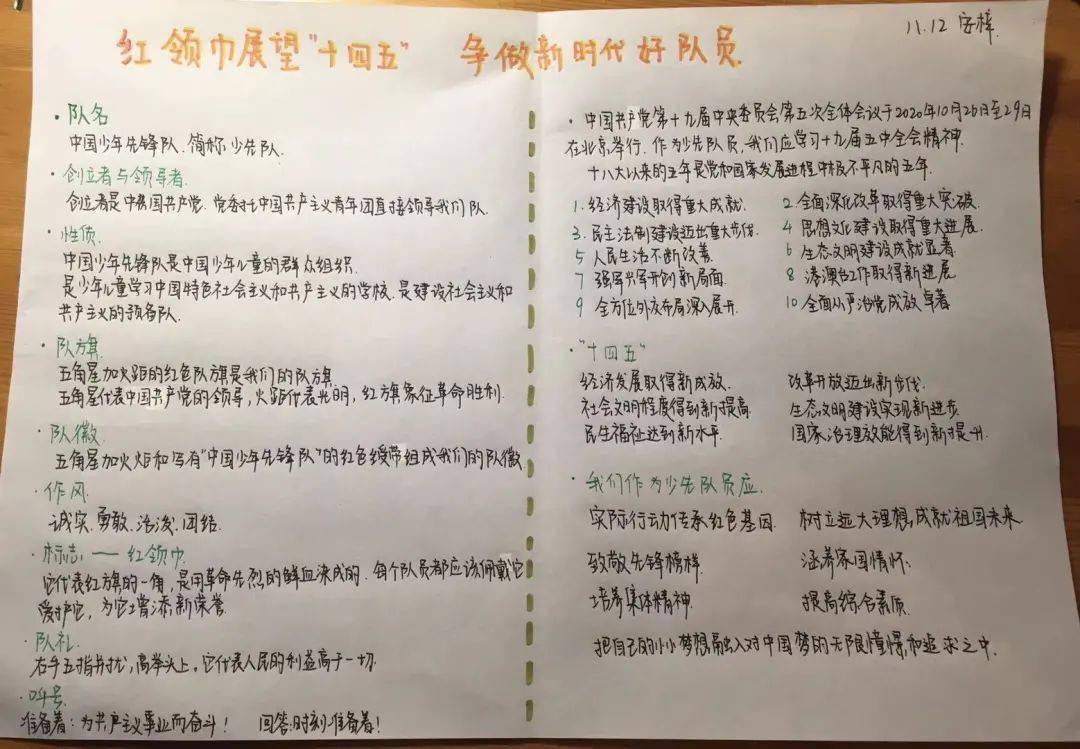 红领巾展望"十四五" 争做新时代好队员
11.12
·队名
中国少年先锋队.简称少先队.
·创立者与领导者.
创立者是中国共产党.党委托中国共产主义青年团直接领导我们队.
·性质.
中国少年先锋队是中国少年儿童的群众组织.
是少年儿童学习中国特色社会主义和共产主义的学校.是建设社会主义和
共产主义的预备队.
·队旗.
五角星加火距的红色队旗是我们的队旗
五角星代表中国共产党的领导,火距代表光明,红旗象征革命胜利.
·队徽
五角星加火炬和写有"中国少年先锋队"的红色绶带组成我们的队徽
·作风.
诚实.勇敢.活泼.团结.
·标志——红领巾.
它代表红旗的一角,是用革命先烈的鲜血染成的.每个队员都应该佩戴它
爱护它,为它增添新荣誉.
·队礼.
右手五指并拢,高举头上,它代表人民的利益高于一切.
·呼号.
准备着:为共产主义事业而奋斗! 回答:时刻准备着!
·中国共产党第十九届中央委员会第五次全体会议于2020年10月26日至29日
在北京举行.作为少先队员,我们应学习十九届五中全会精神.
十八大以来的五年是党和国家发展进程中极不平凡的五年.
1.经济建设取得重大成就. 2.全面深化改革取得重大突破.
3.民主法制建设迈出重大步伐. 4 思想文化建设取得重大进展.
5 人民生活不断改善. 6 生态文明建设成就显著
7 强军兴军开创新局面 8 港澳台工作取得新进展
9 全方位外交布局深入展开. 10 全面从严治党成效卓著
·"十四五"
经济发展取得新成效. 改革开放迈出新步伐.
社会文明程度得到新提高 生态文明建设实现新进步
民生福祉达到新水平. 国家治理效能得到新提升.
·我们作为少先队员应.
实际行动传承红色基因. 树立远大理想,成就祖国未来
致敬先锋榜样. 涵养家国情怀.
培养集体精神. 提高综合素质.
把自己的小小梦想融入对中国梦的无限憧憬和追求之中.